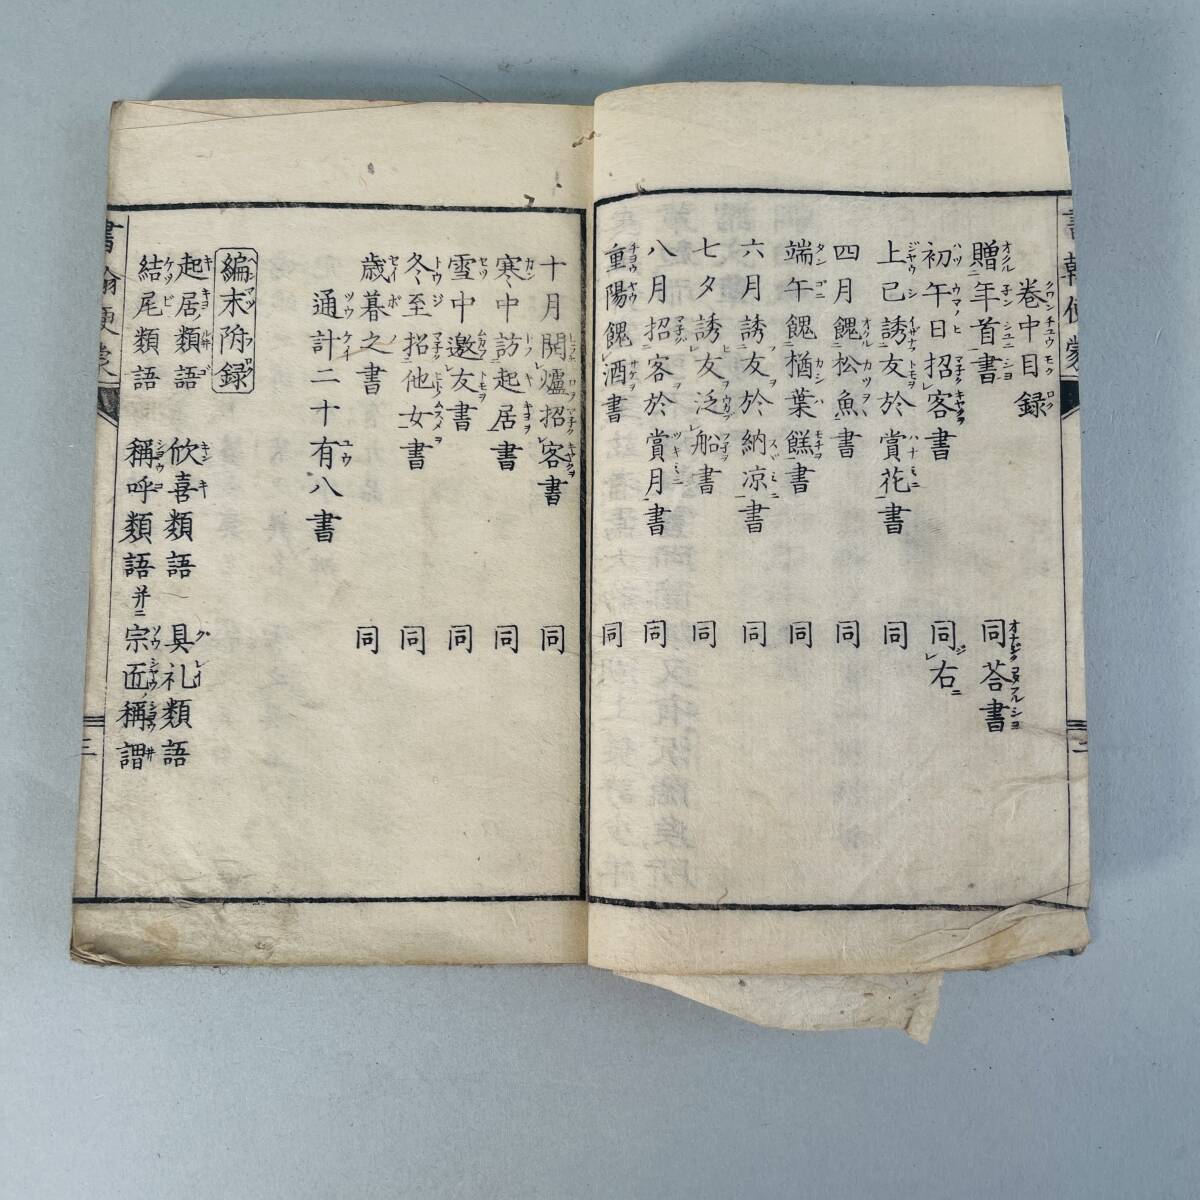 巻中目録
贈年首書 同荅書
初午日招客書 同右
上巳誘友於賞花書 同
四月餽松魚書 同
端午餽楢葉餻書 同
六月誘友於納凉書 同
七夕誘友泛船書 同
八月招客於賞月書 同
重陽餽酒書 同
十月開爐招客書 同
寒中訪起居書 同
雪中邀友書 同
冬至招他女書 同
歳暮之書 同
通計二十有八書
編末附録
起居類語 欣喜類語 具礼類語
結尾類語 稱呼類語并ニ宗匠稱謂
三